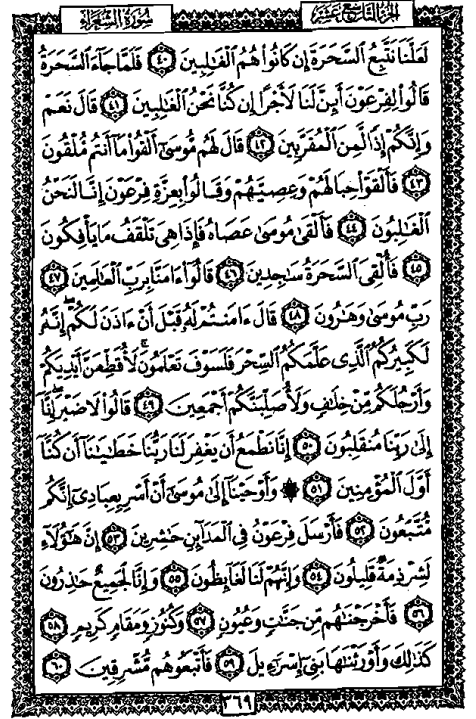 الجزء التاسع عشر سورة الشعراء
لَعَلَّنَا نَتَّبِعُ السَّحَرَةَ إِن كَانُوا۟ هُمُ الْغَٰلِبِينَ ٤٠ فَلَمَّا جَآءَ السَّحَرَةُ
قَالُوا۟ لِفِرْعَوْنَ أَئِنَّ لَنَا لَأَجْرًا إِن كُنَّا نَحْنُ الْغَٰلِبِينَ ٤١ قَالَ نَعَمْ
وَإِنَّكُمْ إِذًا لَّمِنَ الْمُقَرَّبِينَ ٤٢ قَالَ لَهُم مُّوسَىٰٓ أَلْقُوا۟ مَآ أَنتُم مُّلْقُونَ
٤٣ فَأَلْقَوْا۟ حِبَالَهُمْ وَعِصِيَّهُمْ وَقَالُوا۟ بِعِزَّةِ فِرْعَوْنَ إِنَّا لَنَحْنُ
الْغَٰلِبُونَ ٤٤ فَأَلْقَىٰ مُوسَىٰ عَصَاهُ فَإِذَا هِىَ تَلْقَفُ مَا يَأْفِكُونَ
٤٥ فَأُلْقِىَ السَّحَرَةُ سَٰجِدِينَ ٤٦ قَالُوٓا۟ ءَامَنَّا بِرَبِّ الْعَٰلَمِينَ ٤٧
رَبِّ مُوسَىٰ وَهَٰرُونَ ٤٨ قَالَ ءَامَنتُمْ لَهُۥ قَبْلَ أَنْ ءَاذَنَ لَكُمْ ۖ إِنَّهُۥ
لَكَبِيرُكُمُ الَّذِى عَلَّمَكُمُ السِّحْرَ فَلَسَوْفَ تَعْلَمُونَ ۚ لَأُقَطِّعَنَّ أَيْدِيَكُمْ
وَأَرْجُلَكُم مِّنْ خِلَٰفٍ وَلَأُصَلِّبَنَّكُمْ أَجْمَعِينَ ٤٩ قَالُوا۟ لَا ضَيْرَ ۖ إِنَّآ
إِلَىٰ رَبِّنَا مُنقَلِبُونَ ٥٠ إِنَّا نَطْمَعُ أَن يَغْفِرَ لَنَا رَبُّنَا خَطَٰيَٰنَآ أَن كُنَّآ
أَوَّلَ الْمُؤْمِنِينَ ٥١ ۞ وَأَوْحَيْنَآ إِلَىٰ مُوسَىٰٓ أَنْ أَسْرِ بِعِبَادِىٓ إِنَّكُم
مُّتَّبَعُونَ ٥٢ فَأَرْسَلَ فِرْعَوْنُ فِى الْمَدَآئِنِ حَٰشِرِينَ ٥٣ إِنَّ هَٰٓؤُلَآءِ
لَشِرْذِمَةٌ قَلِيلُونَ ٥٤ وَإِنَّهُمْ لَنَا لَغَآئِظُونَ ٥٥ وَإِنَّا لَجَمِيعٌ حَٰذِرُونَ
٥٦ فَأَخْرَجْنَٰهُم مِّن جَنَّٰتٍ وَعُيُونٍ ٥٧ وَكُنُوزٍ وَمَقَامٍ كَرِيمٍ ٥٨
كَذَٰلِكَ وَأَوْرَثْنَٰهَا بَنِىٓ إِسْرَٰٓءِيلَ ٥٩ فَأَتْبَعُوهُم مُّشْرِقِينَ ٦٠
٣٦٩